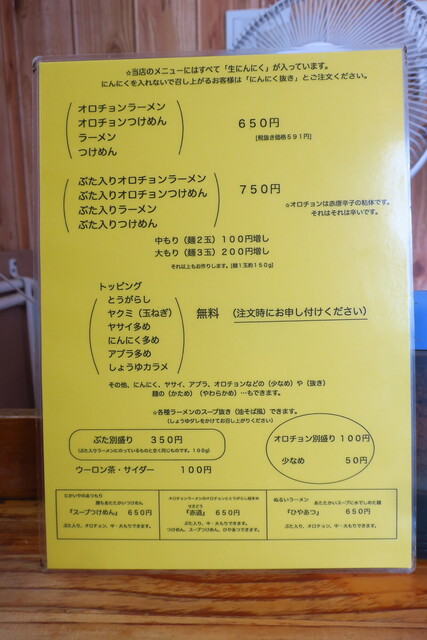 ☆当店のメニューにはすべて「生にんにく」が入っています。
にんにくを入れないで召し上がるお客様は「にんにく抜き」とご注文ください。
オロチョンラーメン
オロチョンつけめん
ラーメン
つけめん
650円
[税抜き価格591円]
ぶた入りオロチョンラーメン
ぶた入りオロチョンつけめん
ぶた入りラーメン
ぶた入りつけめん
750円
☆オロチョンは赤唐辛子の粘体です。
それはそれは辛いです。
中もり(麺2玉)100円増し
大もり(麺3玉)200円増し
それ以上もお作りします。(麺1玉約150g)
トッピング
とうがらし
ヤクミ(玉ねぎ)
ヤサイ多め
にんにく多め
アブラ多め
しょうゆカラメ
無料 (注文時にお申し付けください)
その他、にんにく、ヤサイ、アブラ、オロチョンなどの(少なめ)や(抜き)
麺の(かため)(やわらかめ)…もできます。
☆各種ラーメンのスープ抜き(油そば風)できます。
(しょうゆダレをかけてお召し上がりください)
ぶた別盛り 350円
(ぶた入りラーメンにのっているものと全く同じものです。100g)
ウーロン茶・サイダー 100円
オロチョン別盛り 100円
少なめ 50円
なかいやのあつもり
麺もあたたかいつけめん
『スープつけめん』 650円
ぶた入り、オロチョン、中・大もりできます。
オロチョンラーメンのオロチョンととうがらし超多め
『赤道』 650円
ぶた入り、中・大もりできます。
つけめん、スープつけめん、ひやあつできます。
ぬるいラーメン あたたかいスープに水でしめた麺
『ひやあつ』 650円
ぶた入り、オロチョン、中・大もりできます。